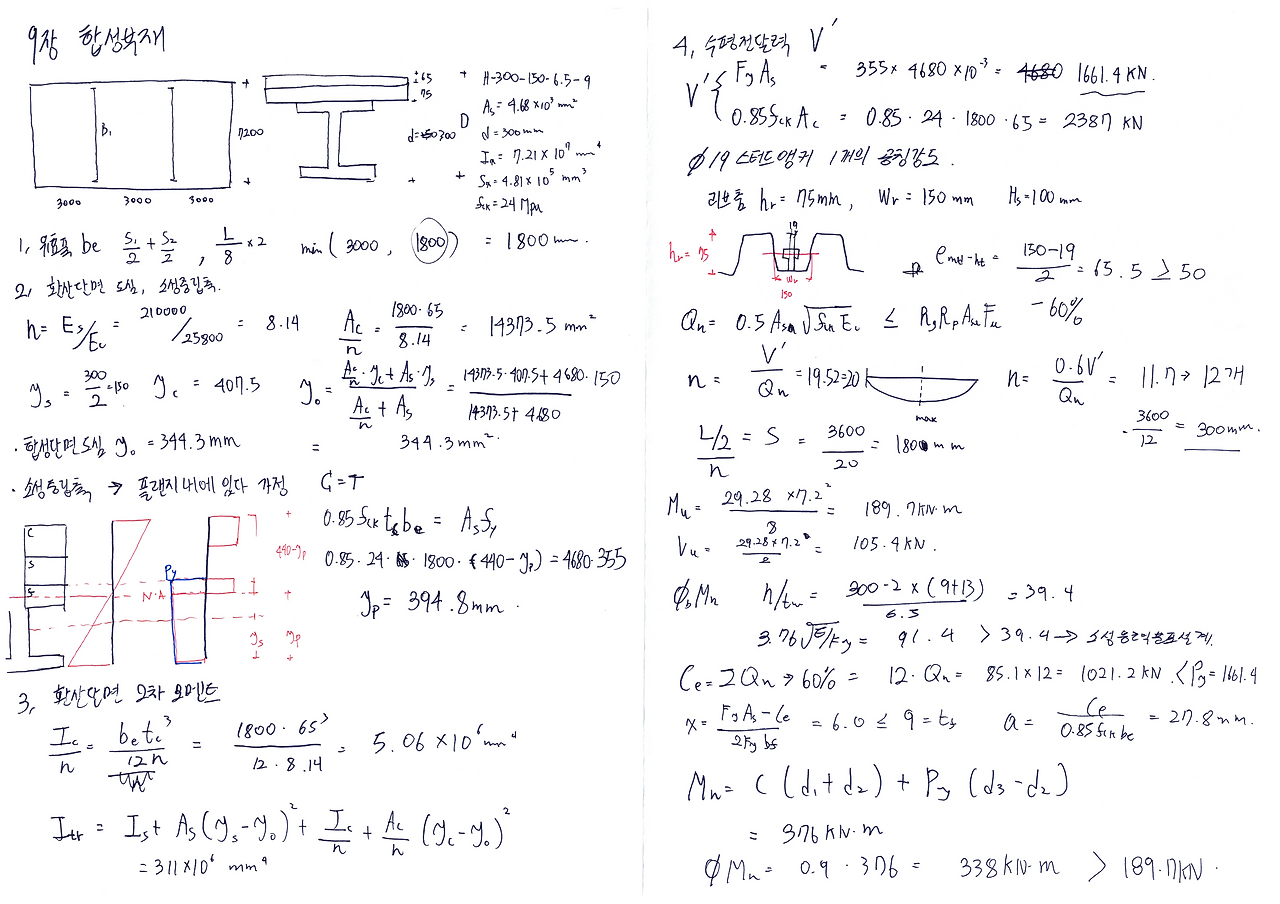 9장 합성부재
65
75
d=300
D
B₁
7200
3000 3000 3000
H-300-150-6.5-9
As = 4.68×10³ mm²
d = 300mm
Ix = 7.21 × 10⁷ mm⁴
Sx = 4.81 × 10⁵ mm³
fck = 24 Mpa
1, 유효폭 be S₁/2 + S₂/2 , L/8 ×2 min ( 3000 , 1800 ) = 1800 mm.
2, 환산단면 도심, 소성중립축.
n = Es/Ec = 210000/25800 = 8.14 Ac/n = 1800·65/8.14 = 14373.5 mm²
ys = 300/2 =150 yc = 407.5 yo = (Ac/n · yc + As · ys)/(Ac/n + As) = (14373.5·407.5 + 4680·150)/(14373.5 + 4680)
· 합성단면도심 yo = 344.3 mm = 344.3 mm²
· 소성중립축 → 플랜지내에 있다 가정 C=T
0.85 fck tc be = As fy
0.85·24· 1800 · (440-yp) = 4680·355
yp = 394.8mm .
C
S
S
Py
N·A
440-yp
ys yp
3, 환산단면 2차 모멘트
Ic/n = be tc³/12n = 1800 · 65³/12 · 8.14 = 5.06 ×10⁶ mm⁴
Itr = Is + As (ys-yo)² + Ic/n + Ac/n (yc-yo)²
= 311×10⁶ mm⁴
4, 수평전달력 V'
V' { Fy As = 355 × 4680 ×10⁻³ = 4680 1661.4 KN.
0.85 fck Ac = 0.85 · 24 · 1800 · 65 = 2387 KN
φ19 스터드앵커 1개의 공칭강도 .
리브폭 hr = 75mm , Wr = 150 mm Hs=100 mm
hr = 75
19
Wr
150
emid-ht = 150-19/2 = 65.5 ≥ 50
Qn = 0.5 Asa √fck Ec ≤ Rg Rp Asa Fu -60%
n = V'/Qn = 19.52=20
max
n = 0.6V'/Qn = 11.7 → 12개
L/2/n = S = 3600/20 = 180 mm
· 3600/12 = 300mm.
Mu = 29.28 ×7.2²/8 = 189.7KN·m
Vu = 29.28×7.2/2 = 105.4 KN .
φb Mn h/tw = 300-2 × (9+13)/6.5 = 39.4
3.76 √E/Fy = 91.4 > 39.4 → 소성응력분포설계.
Ce = ΣQn → 60% = 12 · Qn = 85.1×12 = 1021.2 KN < Py = 1661.4
x = Fy As - Ce/2Fy bf = 6.0 ≤ 9 = tf a = Ce/0.85 fck be = 27.8 mm.
Mn = C (d₁+d₂) + Py (d₃-d₂)
= 376 KN·m
φMn = 0.9 · 376 = 338 KN·m > 189.7KN .